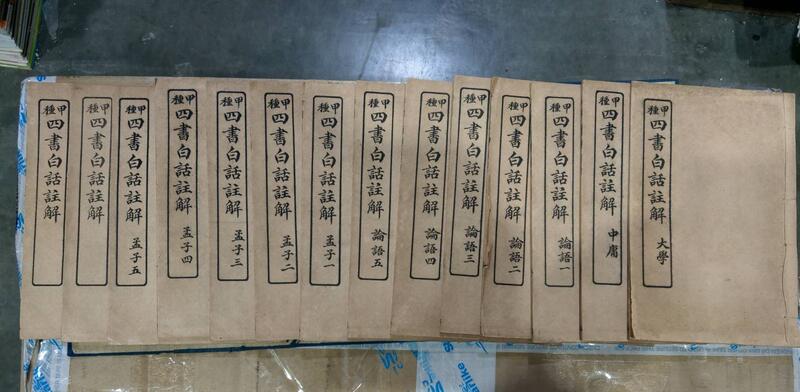 甲種四書白話註解 大學
甲種四書白話註解 中庸
甲種四書白話註解 論語一
甲種四書白話註解 論語二
甲種四書白話註解 論語三
甲種四書白話註解 論語四
甲種四書白話註解 論語五
甲種四書白話註解 孟子一
甲種四書白話註解 孟子二
甲種四書白話註解 孟子三
甲種四書白話註解 孟子四
甲種四書白話註解 孟子五
甲種四書白話註解
甲種四書白話註解